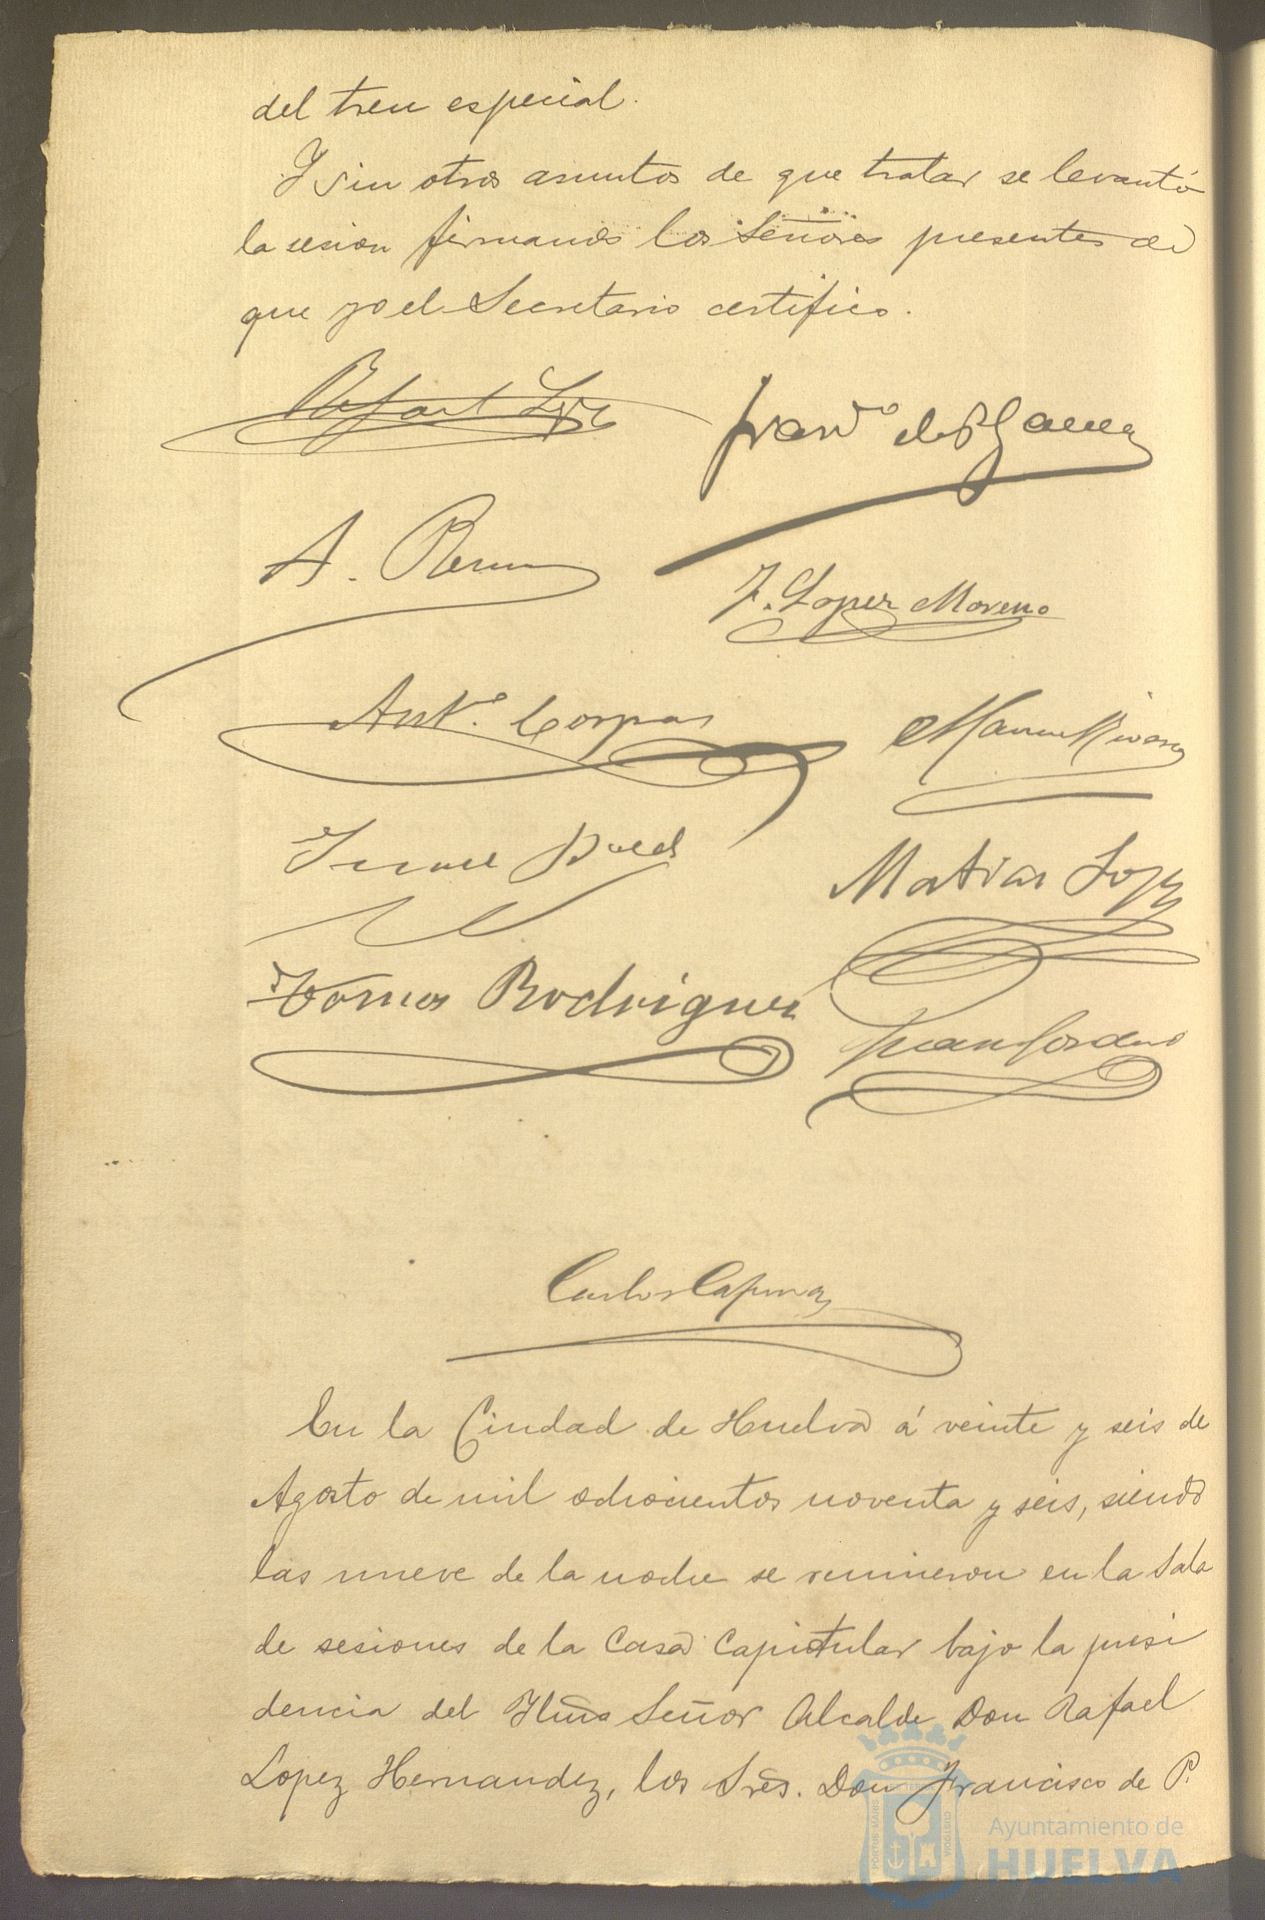 del tren especial.
Y sin otros asuntos de que tratar se levantó
la sesion firmando los Señores presentes de
que yo el Secretario certifico.
Rafael Lopez
Franco de P
A.
F. Lopez Moreno
Anto. Corpas
Manuel
Matias Lopez
Tomas Rodriguez
Juan
Carlos
En la Ciudad de Huelva á veinte y seis de
Agosto de mil ochocientos noventa y seis, siendo
las nueve de la noche se reunieron en la Sala
de sesiones de la Casa Capitular bajo la presi
dencia del Ylmo Señor Alcalde Don Rafael
Lopez Hernandez, los Sres. Don Francisco de P.
Ayuntamiento de
HUELVA